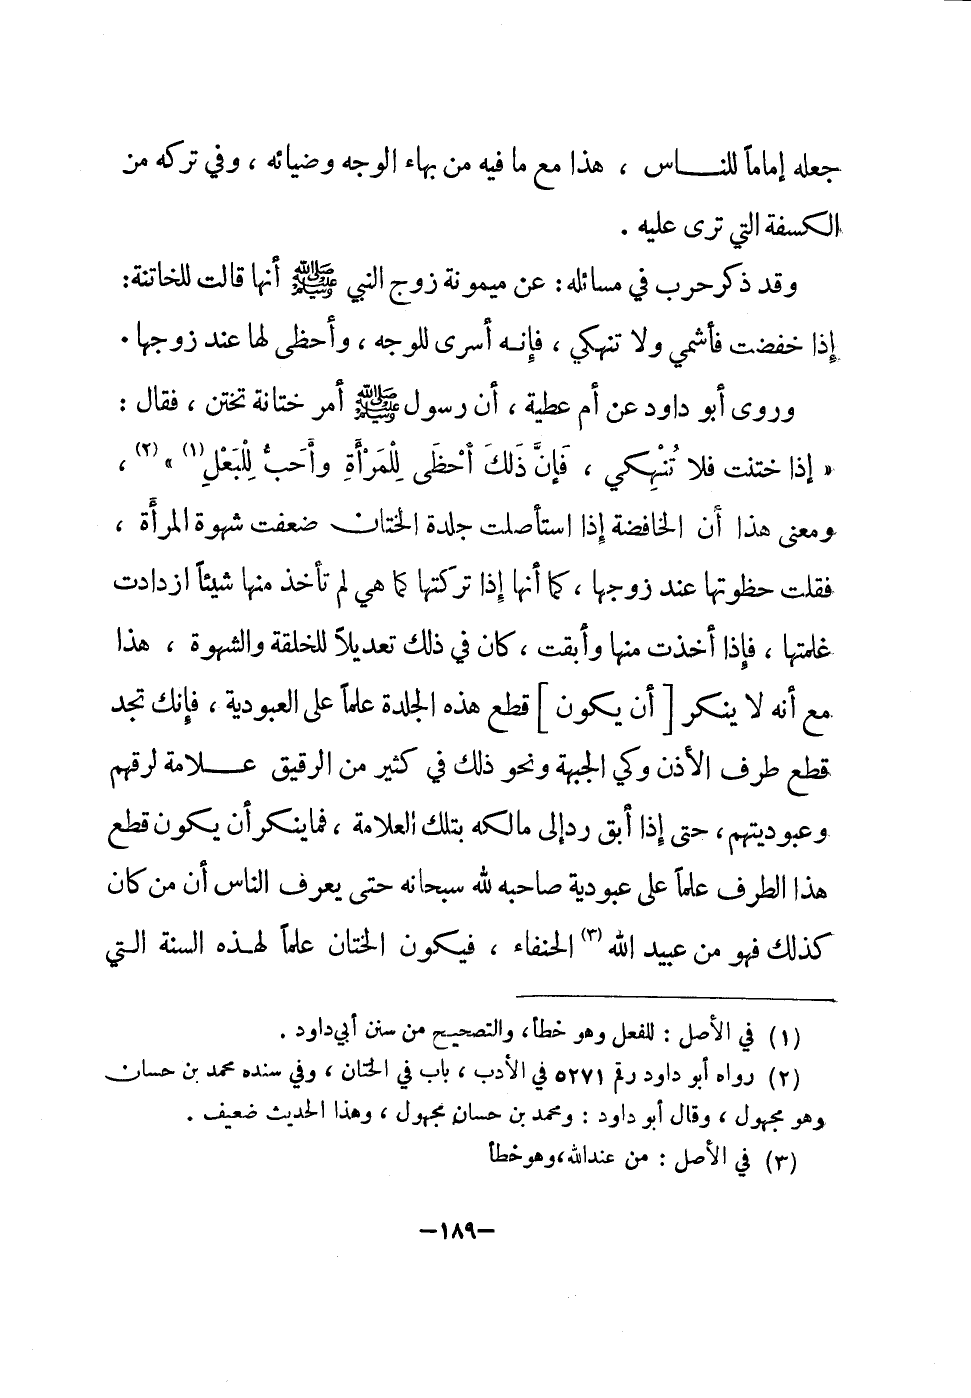 جعله إماماً للنـــاس ، هذا مع ما فيه من بهاء الوجه وضيائه ، وفي تركه من
الكسفة التي ترى عليه .
وقد ذكر حرب في مسائله : عن ميمونة زوج النبي ﷺ أنها قالت للخاتنة :
إذا خفضت فأشمي ولا تنهكي ، فإنـه أسرى للوجه ، وأحظى لها عند زوجها .
وروى أبو داود عن أم عطية ، أن رسول ﷺ أمر ختانة تختن ، فقال :
« إذا ختنت فلا تُنْهِكي ، فَإنَّ ذَلكَ أحْظَى لِلْمَرْأَةِ وأَحَبُّ لِلْبَعْلِ (١) » (٢) ،
ومعنى هذا أن الخافضة إذا استأصلت جلدة الختان ضعفت شهوة المرأة ،
فقلت حظوتها عند زوجها ، كما أنها إذا تركتها كما هي لم تأخذ منها شيئاً ازدادت
غلمتها ، فإذا أخذت منها وأبقت ، كان في ذلك تعديلاً للخلقة والشهوة ، هذا
مع أنه لا ينكر [ أن يكون ] قطع هذه الجلدة علماً على العبودية ، فإنك تجد
قطع طرف الأذن وكي الجبهة ونحو ذلك في كثير من الرقيق عـــلامة لرقهم
وعبوديتهم ، حتى إذا أبق رد إلى مالكه بتلك العلامة ، فما ينكر أن يكون قطع
هذا الطرف علماً على عبودية صاحبه لله سبحانه حتى يعرف الناس أن من كان
كذلك فهو من عبيد الله (٣) الحنفاء ، فيكون الختان علماً لهـذه السنة التي
(١) في الأصل : للفعل وهو خطأ، والتصحيح من سنن أبي داود .
(٢) رواه أبو داود رقم ٥٢٧١ في الأدب ، باب في الختان ، وفي سنده محمد بن حسان
وهو مجهول ، وقال أبو داود : ومحمد بن حسان مجهول ، وهذا الحديث ضعيف .
(٣) في الأصل : من عندالله، وهو خطأ
–١٨٩–